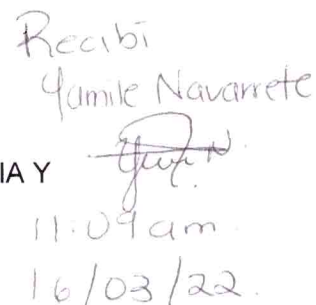 Recibi
Yamile Navarrete
IA Y
11:09 am
16/03/22.